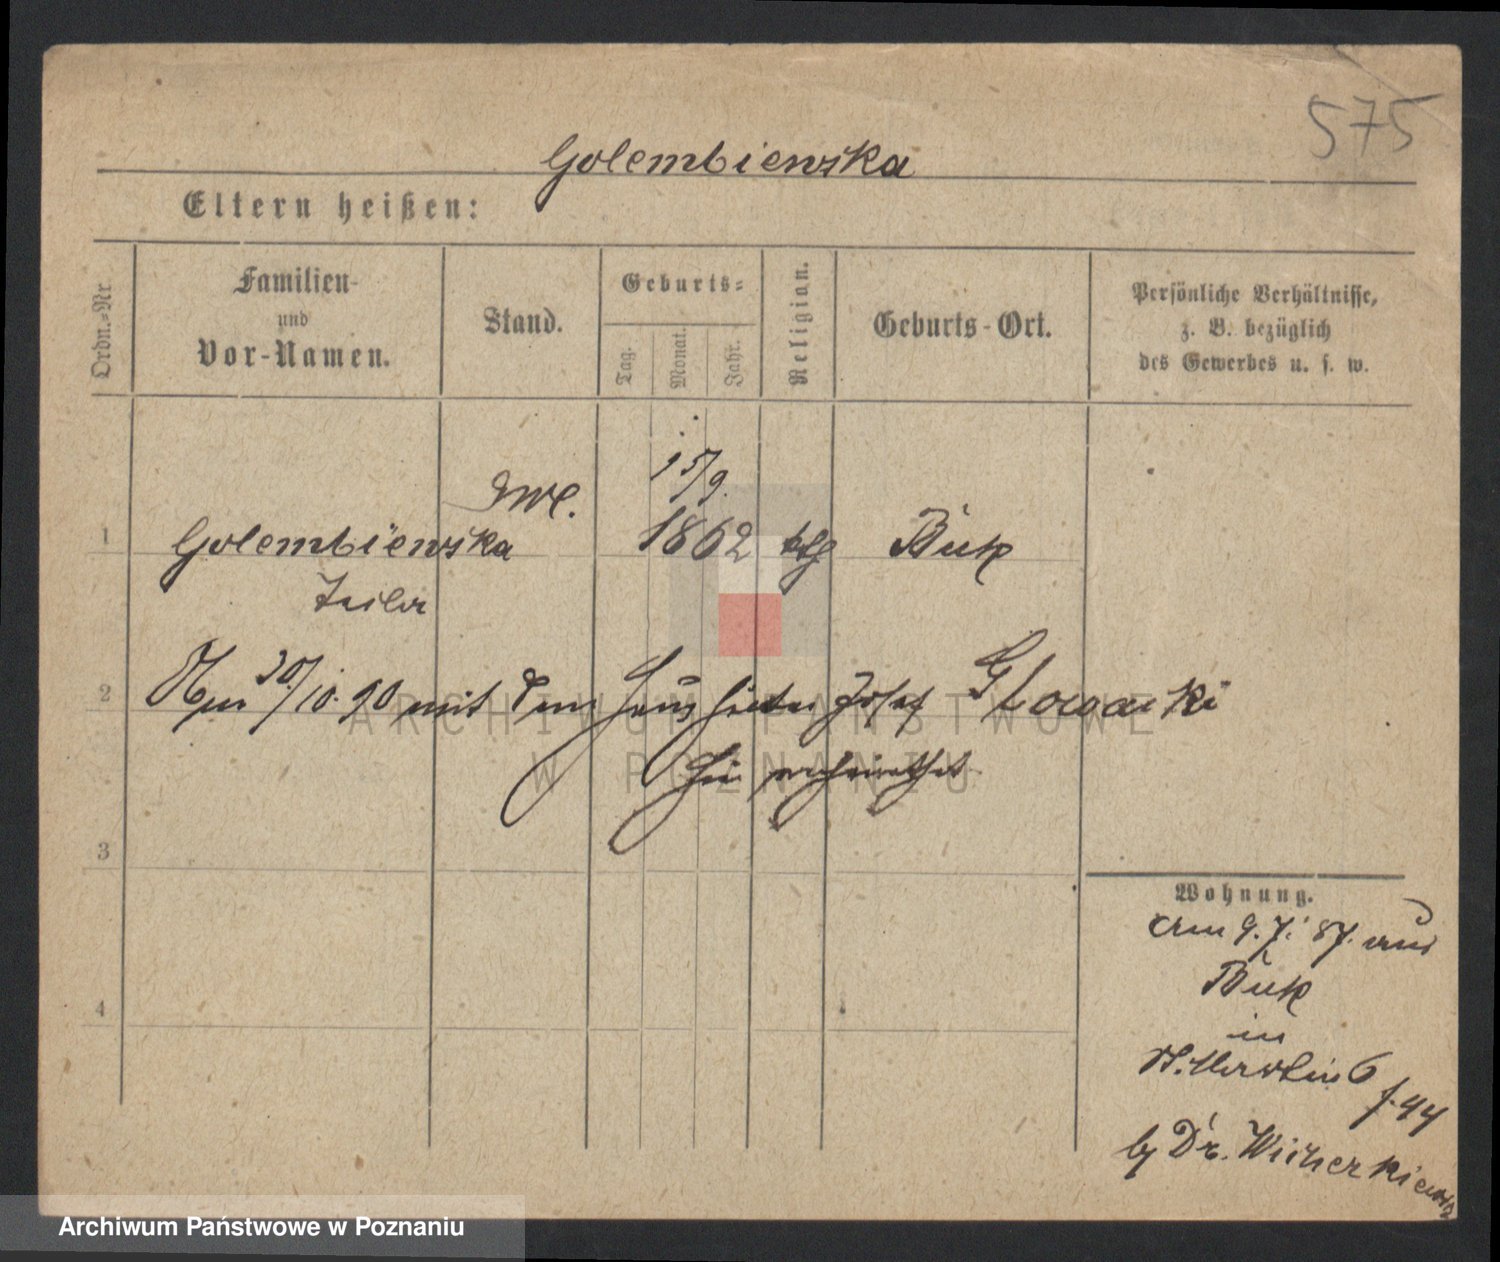 575
Golembiewska
Eltern heißen:
Ordn.-Nr.
Familien-
und
Vor-Namen.
Stand.
Geburts-
Tag.
Monat.
Jahr.
Religian.
Geburts-Ort.
Persönliche Verhältnisse,
z. B. bezüglich
des Gewerbes u. s. w.
15/9.
1 Golembiewska 1862 kth Buk
2 Am 20/10. 90 mit dem Haushälter Josef Głowacki
hier verheirathet
3
4
Wohnung.
am 9.7. 87. aus
Buk
in
St. Martin 6
f. 44
by Dr. Wicherkiewicz
ARCHIWUM PAŃSTWOWE
W POZNANIU
Archiwum Państwowe w Poznaniu